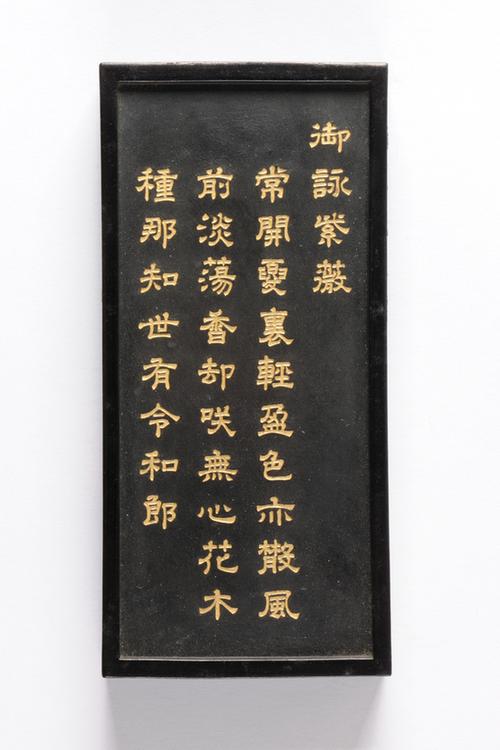 御詠紫薇
常開夏裏輕盈色亦散風
前淡蕩香却咲無心花木
種那知世有令和郎